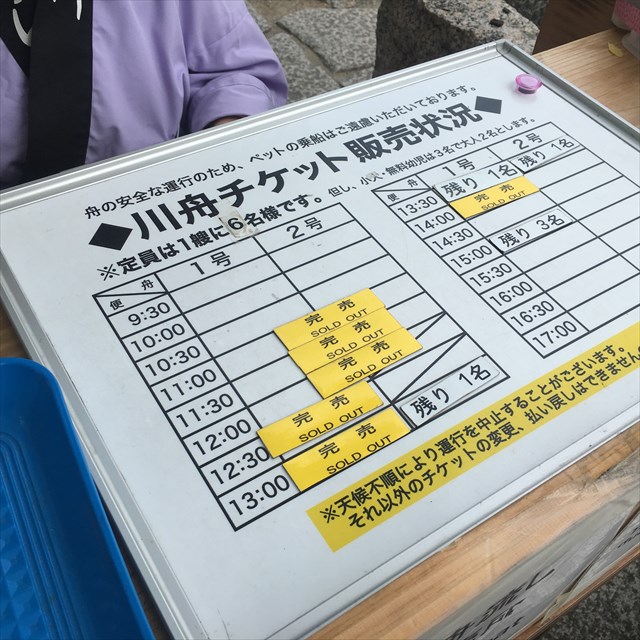 舟の安全な運行のため、ペットの乗船はご遠慮いただいております。
◆川舟チケット販売状況◆
※定員は1艘に6名様です。但し、小・無料幼児は3名で大人2名とします。
便 舟 1号 2号
9:30
10:00
10:30 完売 SOLD OUT
11:00 完売 SOLD OUT
11:30 完売 SOLD OUT
12:00
12:30 完売 SOLD OUT 残り 1名
13:00 完売 SOLD OUT
便 舟 1号 2号
13:30 残り 1名 残り 1名
14:00 完売 SOLD OUT
14:30
15:00 残り 3名
15:30
16:00
16:30
17:00
※天候不順により運行を中止することがございます。
それ以外のチケットの変更、払い戻しはできません